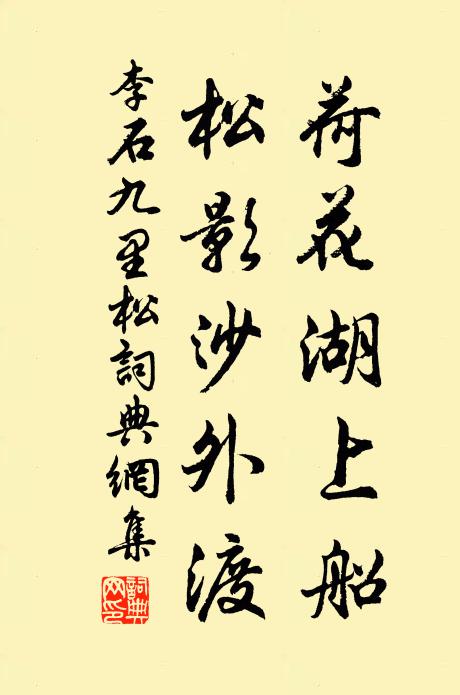 荷花湖上船
松影沙外渡
李石九里松詞典網集
詞典网印